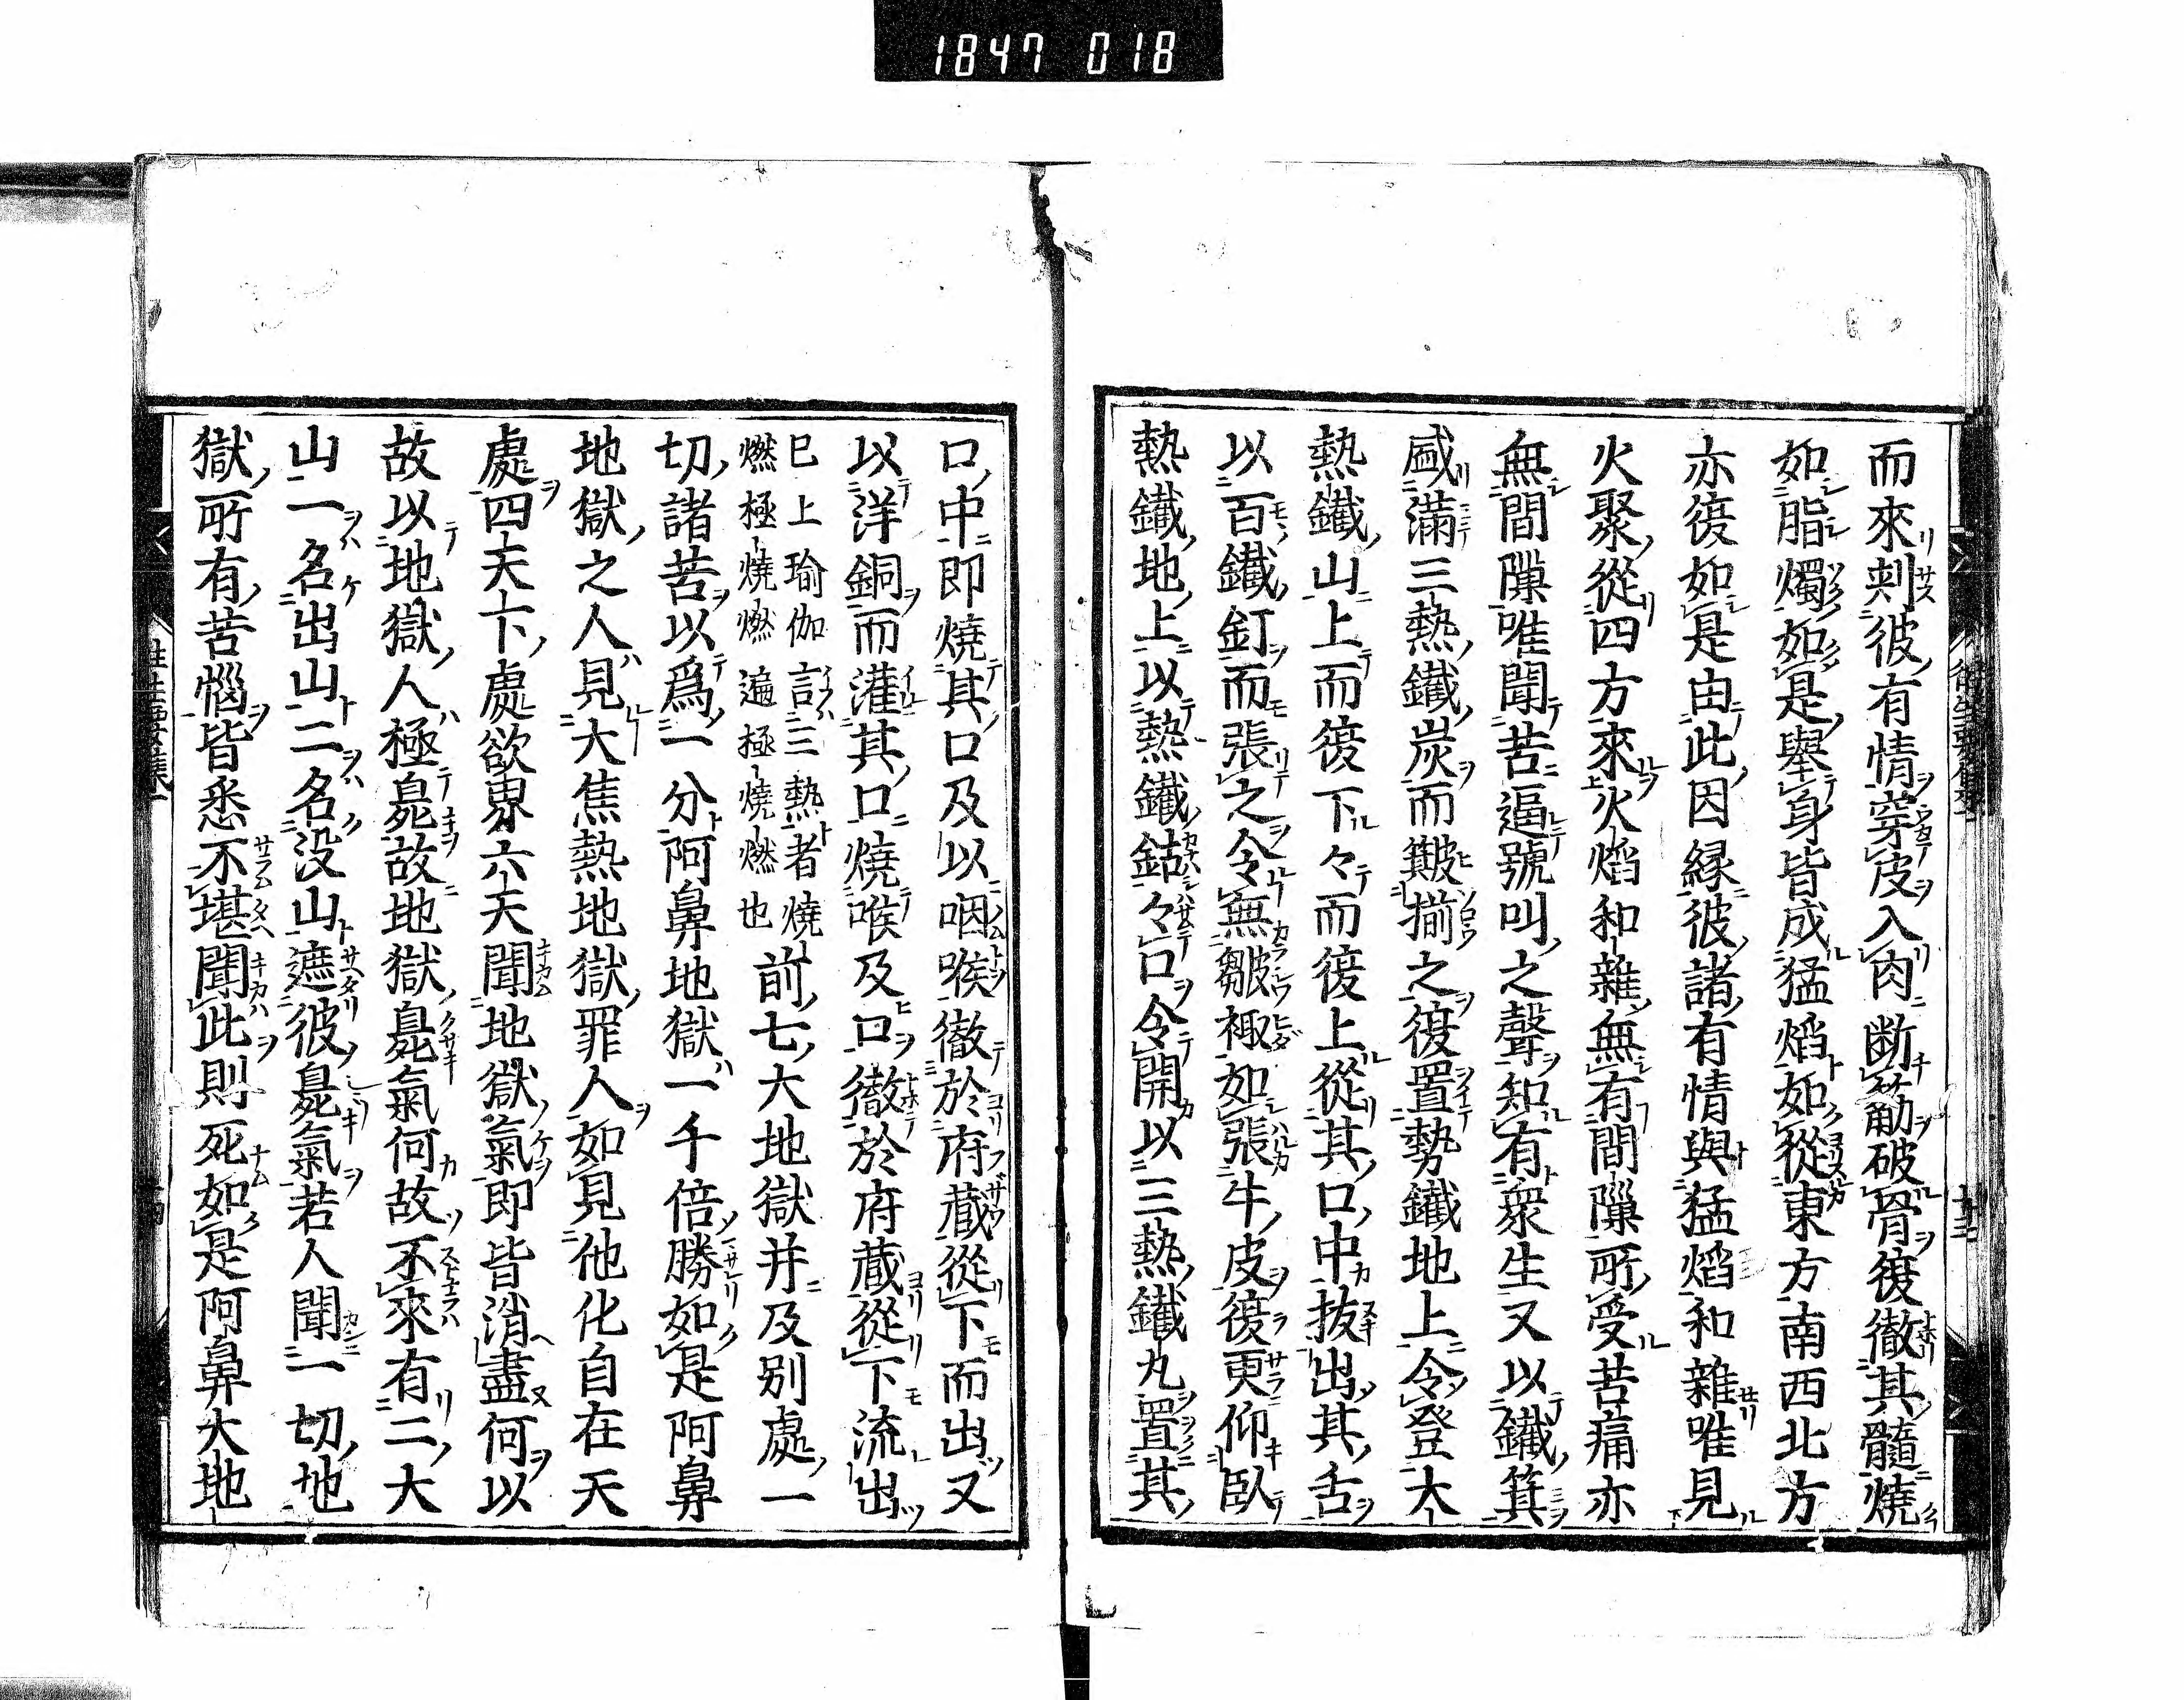 1847 018
而來刺彼有情穿皮入肉断筋破骨復徹其髓燒
如脂燭如是舉身皆成猛焰如從東方南西北方
亦復如是由此因緣彼諸有情與猛焰和雜唯見
火聚從四方來火焰和雜無有間隟所受苦痛亦
無間隟唯聞苦逼號叫之聲知有衆生又以鐵箕
盛滿三熱鐵炭而簸揃之復置熱鐵地上令登大
熱鐵山上而復下々而復上從其口中拔出其舌
以百鐵釘而張之令無皺襵如張牛皮復更仰臥
熱鐵地上以熱鐵鉆々口令開以三熱鐵丸置其
口中即燒其口及以咽喉徹於府藏從下而出又
以洋銅而灌其口燒喉及口徹於府藏從下流出
已上瑜伽言三熱者燒
燃極燒燃遍極燒燃也
前七大地獄并及別處一
切諸苦以爲一分阿鼻地獄一千倍勝如是阿鼻
地獄之人見大焦熱地獄罪人如見他化自在天
處四天下處欲界六天聞地獄氣即皆消盡何以
故以地獄人極臰故地獄臰氣何故不來有二大
山一名出山二名没山遮彼臰氣若人聞一切地
獄所有苦惱皆悉不堪聞此則死如是阿鼻大地